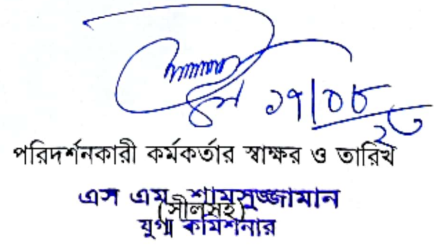 ১৭/০৮
২৩
পরিদর্শনকারী কর্মকর্তার স্বাক্ষর ও তারিখ
এস এম শামসুজ্জামান
(সীলসহ)
যুগ্ম কমিশনার